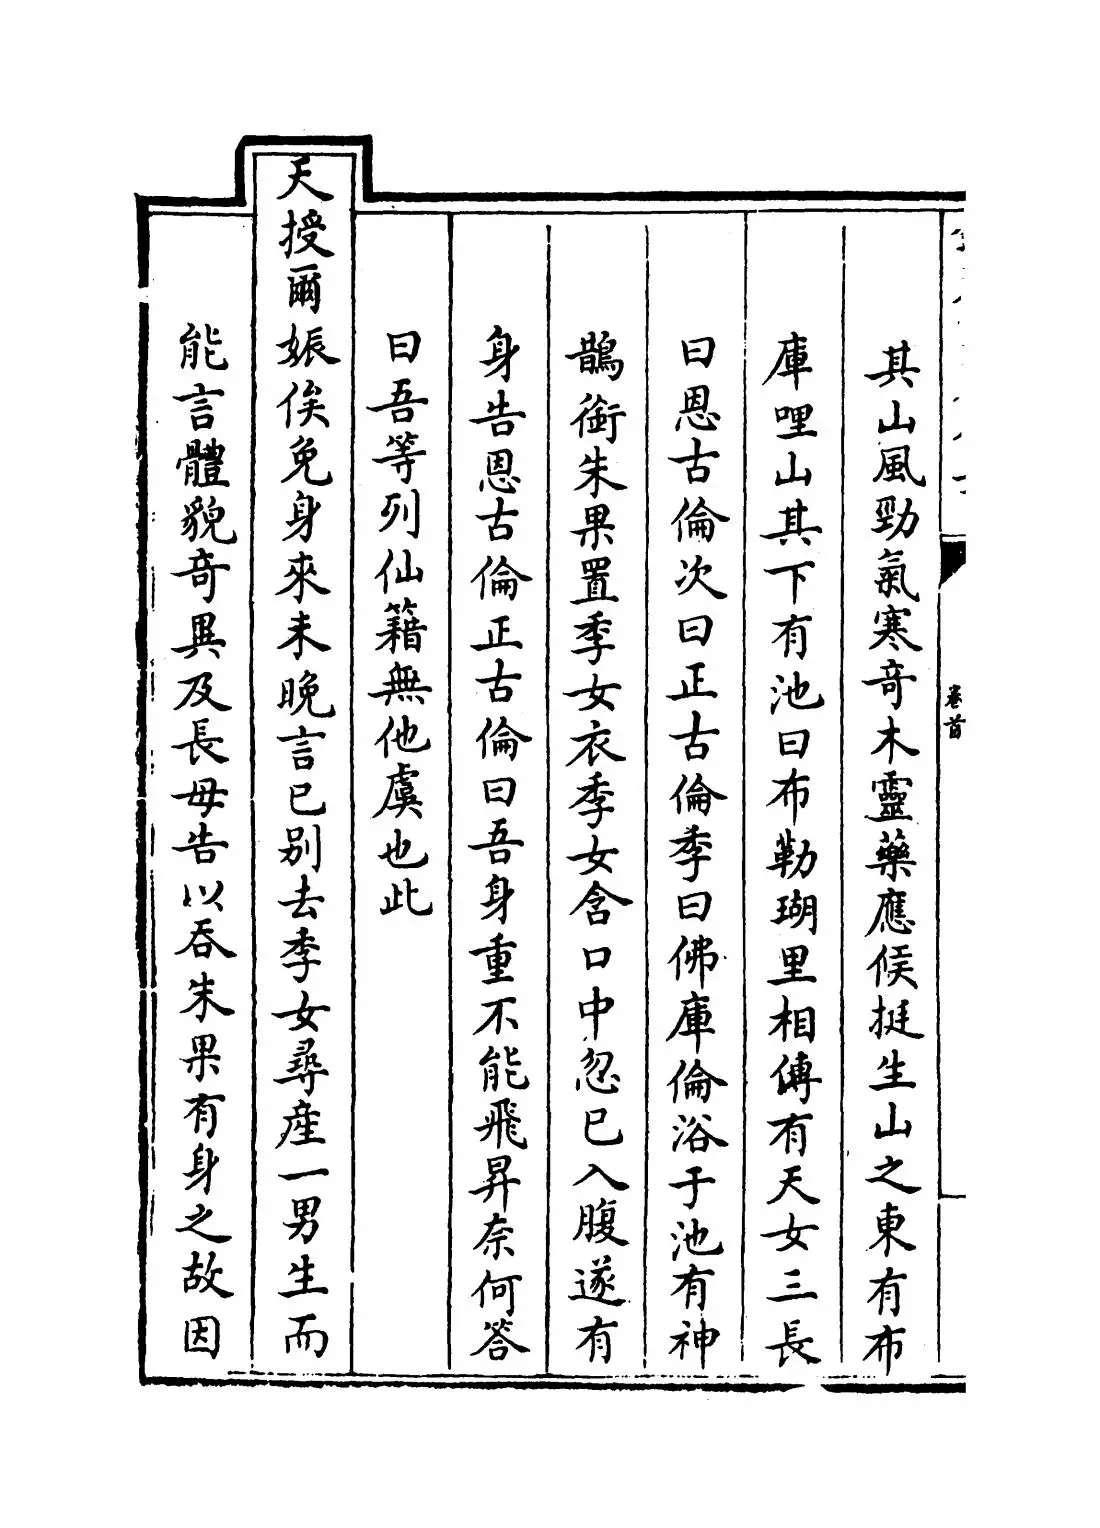 其山風勁氣寒奇木靈藥應候挺生山之東有布
庫哩山其下有池曰布勒瑚里相傳有天女三長
曰恩古倫次曰正古倫季曰佛庫倫浴于池有神
鵲銜朱果置季女衣季女含口中忽已入腹遂有
身告恩古倫正古倫曰吾身重不能飛昇奈何答
曰吾等列仙籍無他虞也此
天授爾娠俟免身來未晚言已别去季女尋産一男生而
能言體貌奇異及長母告以吞朱果有身之故因
卷首